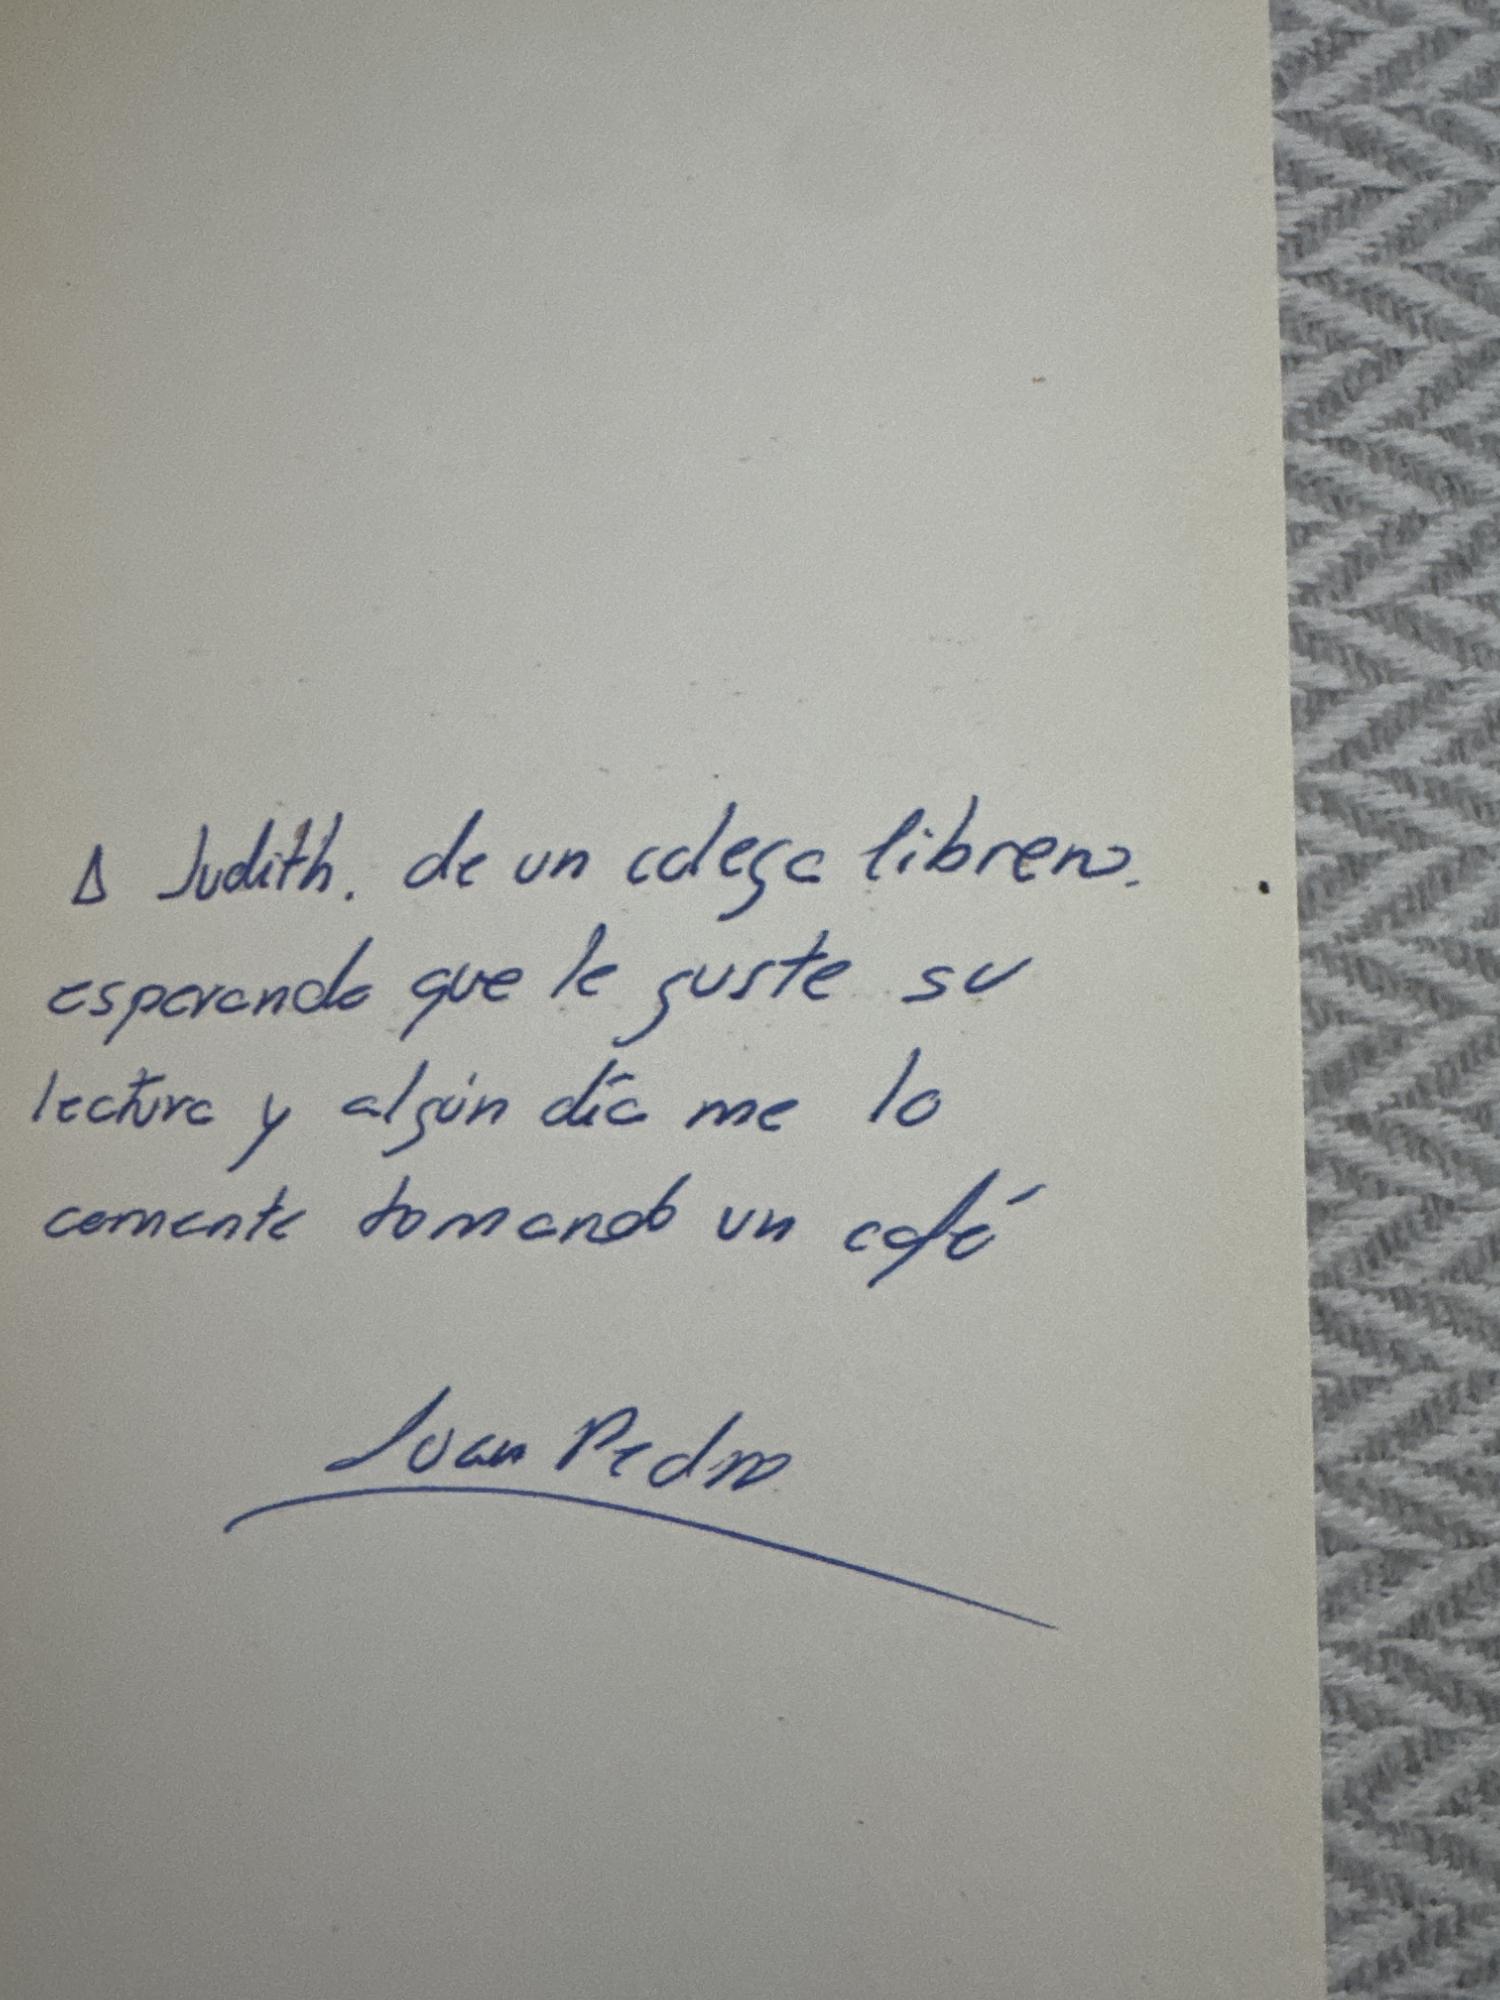 A Judith. de un colega librero.
esperando que le guste su
lectura y algún día me lo
comente tomando un café
Juan Pedro